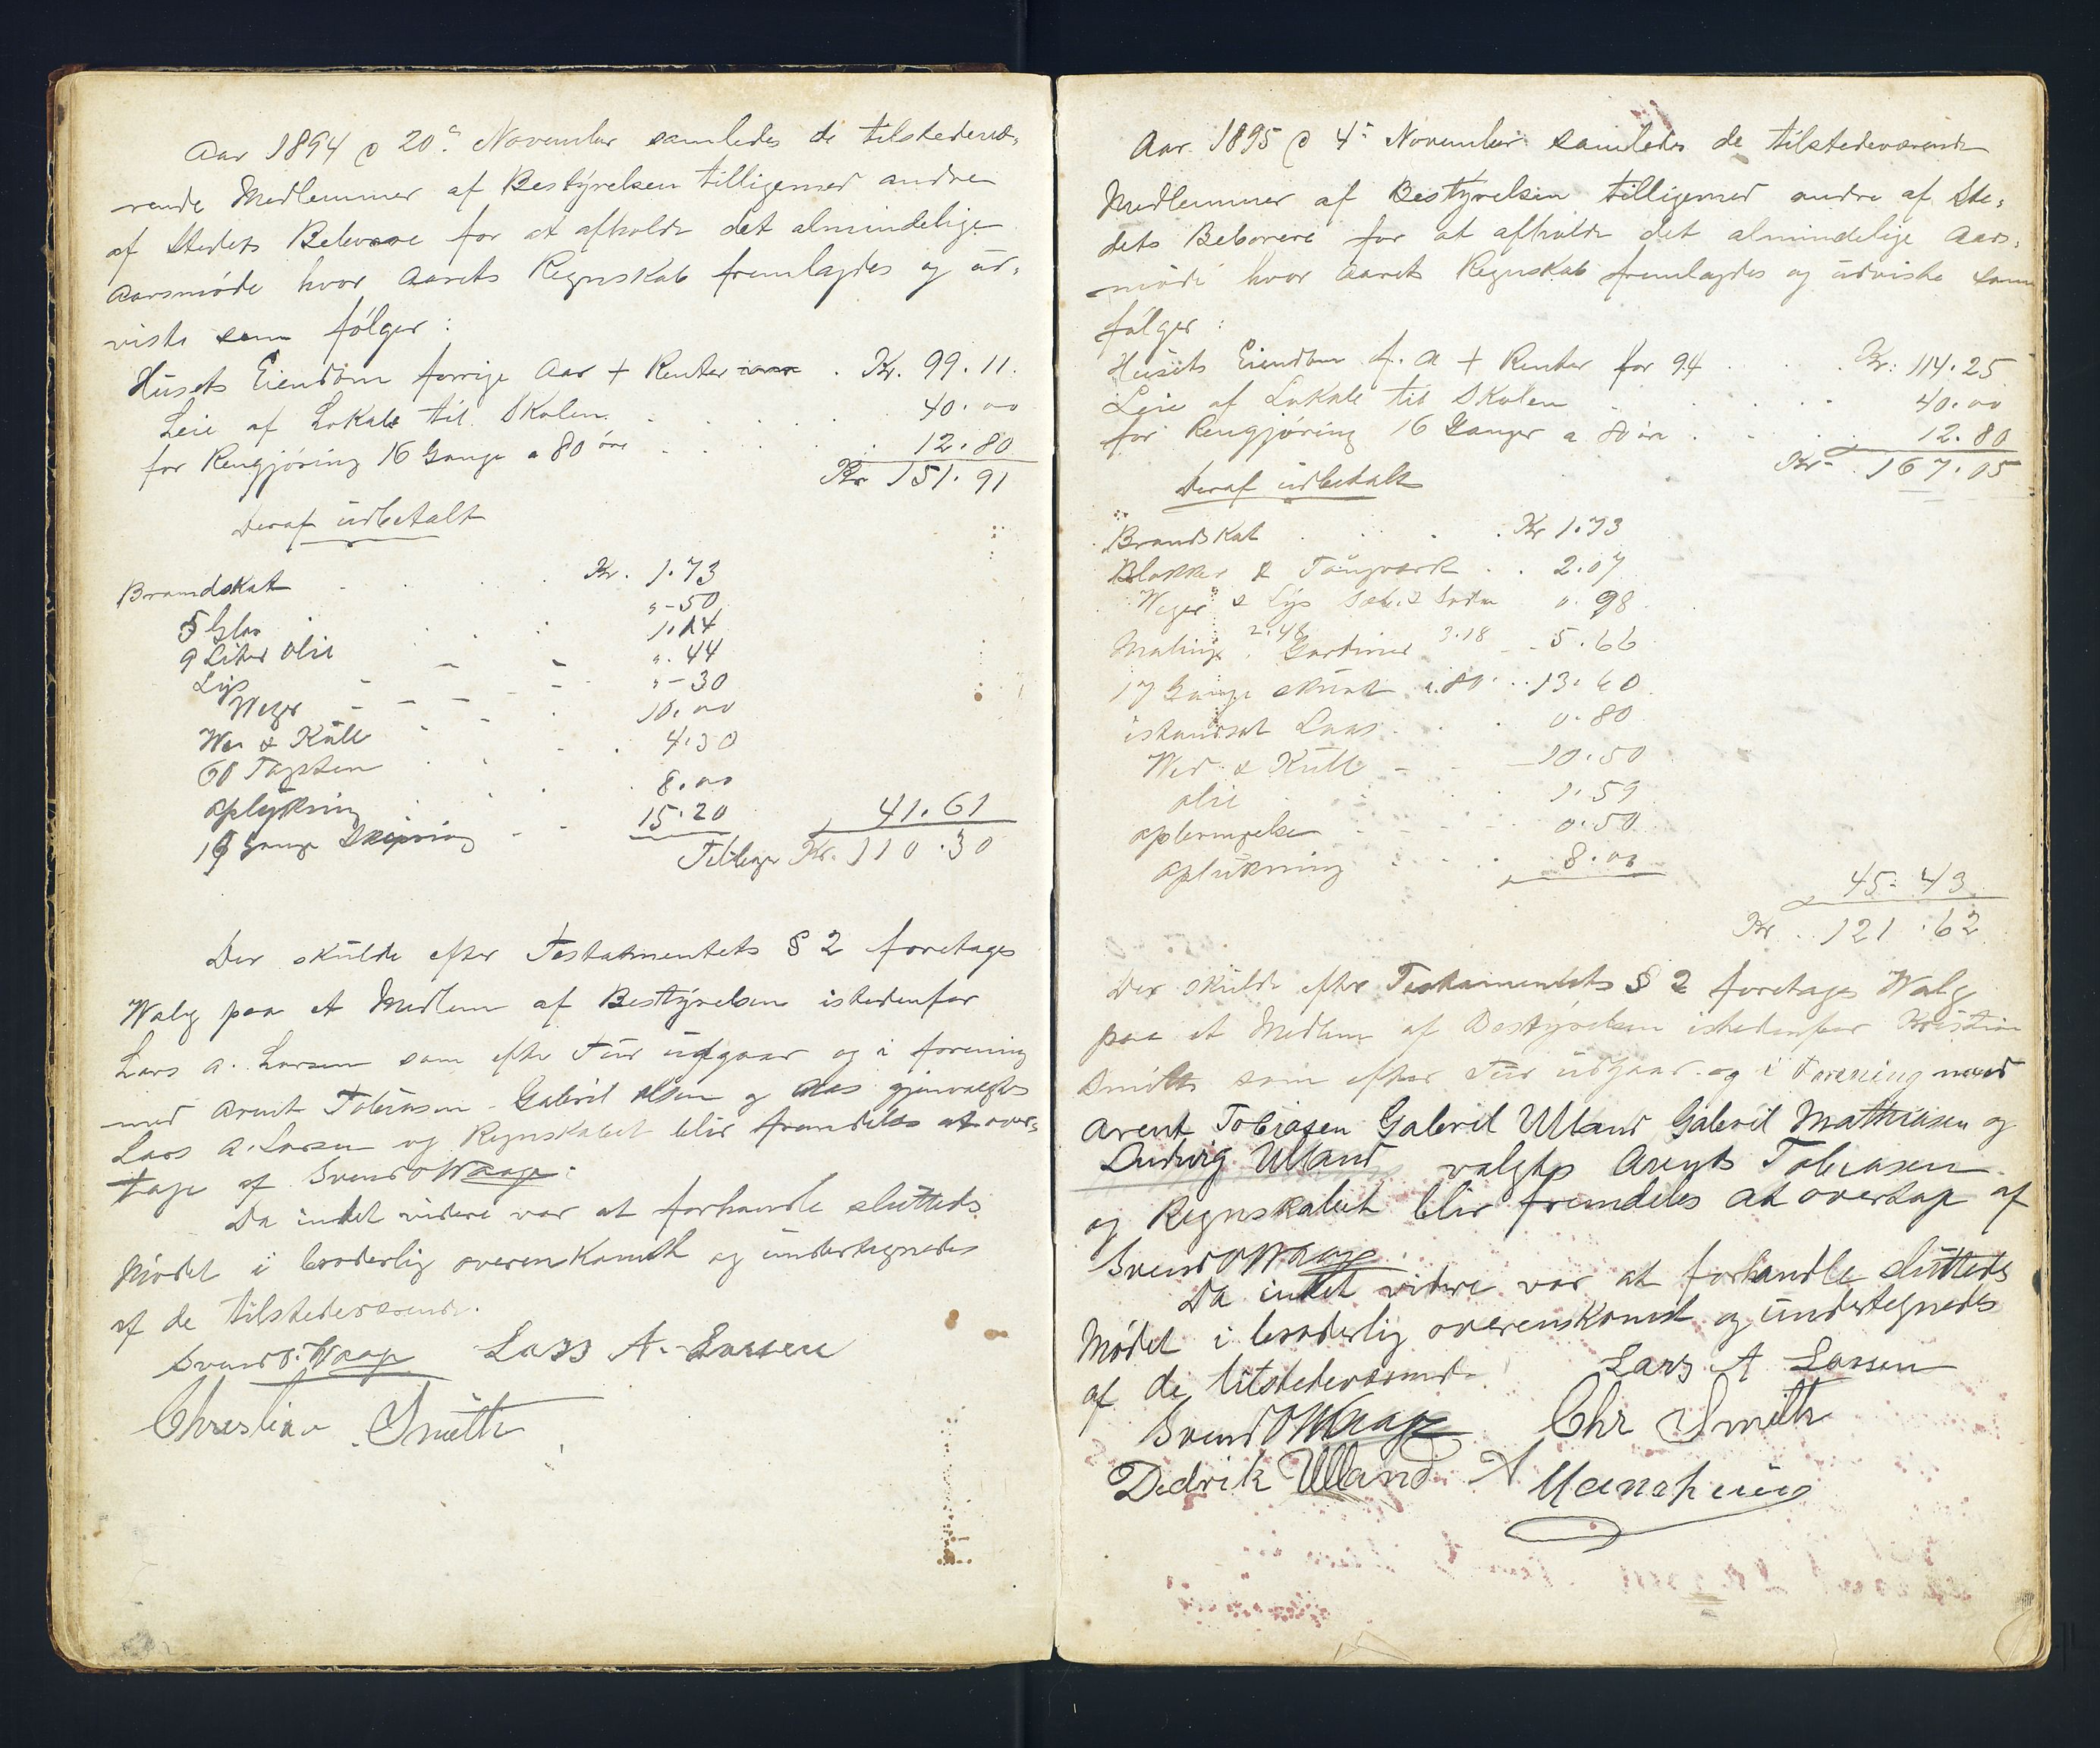 Aar 1894 d 20de November samledes de tilstedevæ-
rende Medlemmer af Bestyrelsen tilligemed andre
af Stedets Beboere for at afholde det almindelige
Aarsmøde hvor Aarets Regnskab fremlagdes og ud-
viste som følger:
Husets Eiendom forrige Aar + Renter . Kr. 99.11.
Leie af Lokale til Skolen . . . . 40.00
for Rengjøring 16 Gange a 80 øre . . . . 12.80
Kr 151.91
Deraf udbetalt
Brandskat . . . . Kr. 1.73
5 Glas . . . „-50
9 Liter Olie . . . 1.14
Lys - - „.44
Weger - - - „-30
Wed & Kull . . . 10.00
60 Tagsten . . 4.30
Oplykning . . . 8.00
19 Gange - - 15.20 41.61
Tilbage Kr. 110.30
Der skulde efter Testamentets § 2 foretages
Walg paa et Medlem af Bestyrelsen istedenfor
Lars A. Larsen som efter Tur udgaar og i forening
med Arent Tobiasen Gabriel Olsen og gjenvalgtes
Lars A. Larsen og Regnskabet blir fremdeles at over-
tage af Svend O Waage.
Da intet videre var at forhandle sluttedes
Mødet i broderlig overenskomst og undertegnedes
af de tilstedeværende.
Svend O. Waage Lars A. Larsen
Christian Smith
Aar 1895 d 4de November samledes de tilstedeværende
Medlemmer af Bestyrelsen tilligemed andre af Ste-
dets Beboere for at afholde det almindelige Aars-
møde hvor Aarets Regnskab fremlagdes og udviste som
følger:
Husets Eiendom f. A + Renter for 94 . . . Kr. 114.25
Leie af Lokale til Skolen . . . . 40.00
for Rengjøring 16 Ganger a 80 øre . . . 12.80
Kr. 167.05
Deraf udbetalt
Brandskat . . . Kr 1.73
Blokker & Tougværk . . 2.07
Weger & Lys Sæbe & Soda 0.98
Maling 2.48 Gardiner 3.18 - 5.66
17 Gange skuret a 80 . . 13.60
istandsat Laas . . . 0.80
Wed & Kull - - 10.50
Olie . . . 1.59
- - - 0.50
Oplukning . . . 8.00
45.43
Kr. 121.62
Der skulde efter Testamentets § 2 foretages Walg
paa et Medlem af Bestyrelsen istedenfor Kristian
Smith som efter Tur udgaar og i Forening med
Arent Tobiasen Gabriel Ulland Gabriel Mathiasen og
Ludvig Ulland valgtes Arents Tobiasen
og Regnskabet blir fremdeles at overtage af
Svend O Waage
Da intet videre var at forhandle sluttedes
Mødet i broderlig overenskomst og undertegnedes
af de tilstedeværende
Lars A Larsen
Svend O Waage Chr Smith
Didrik Ulland A